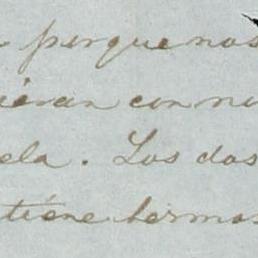 porque nos
ieran con nu
ela. Los dos
tiene hermos